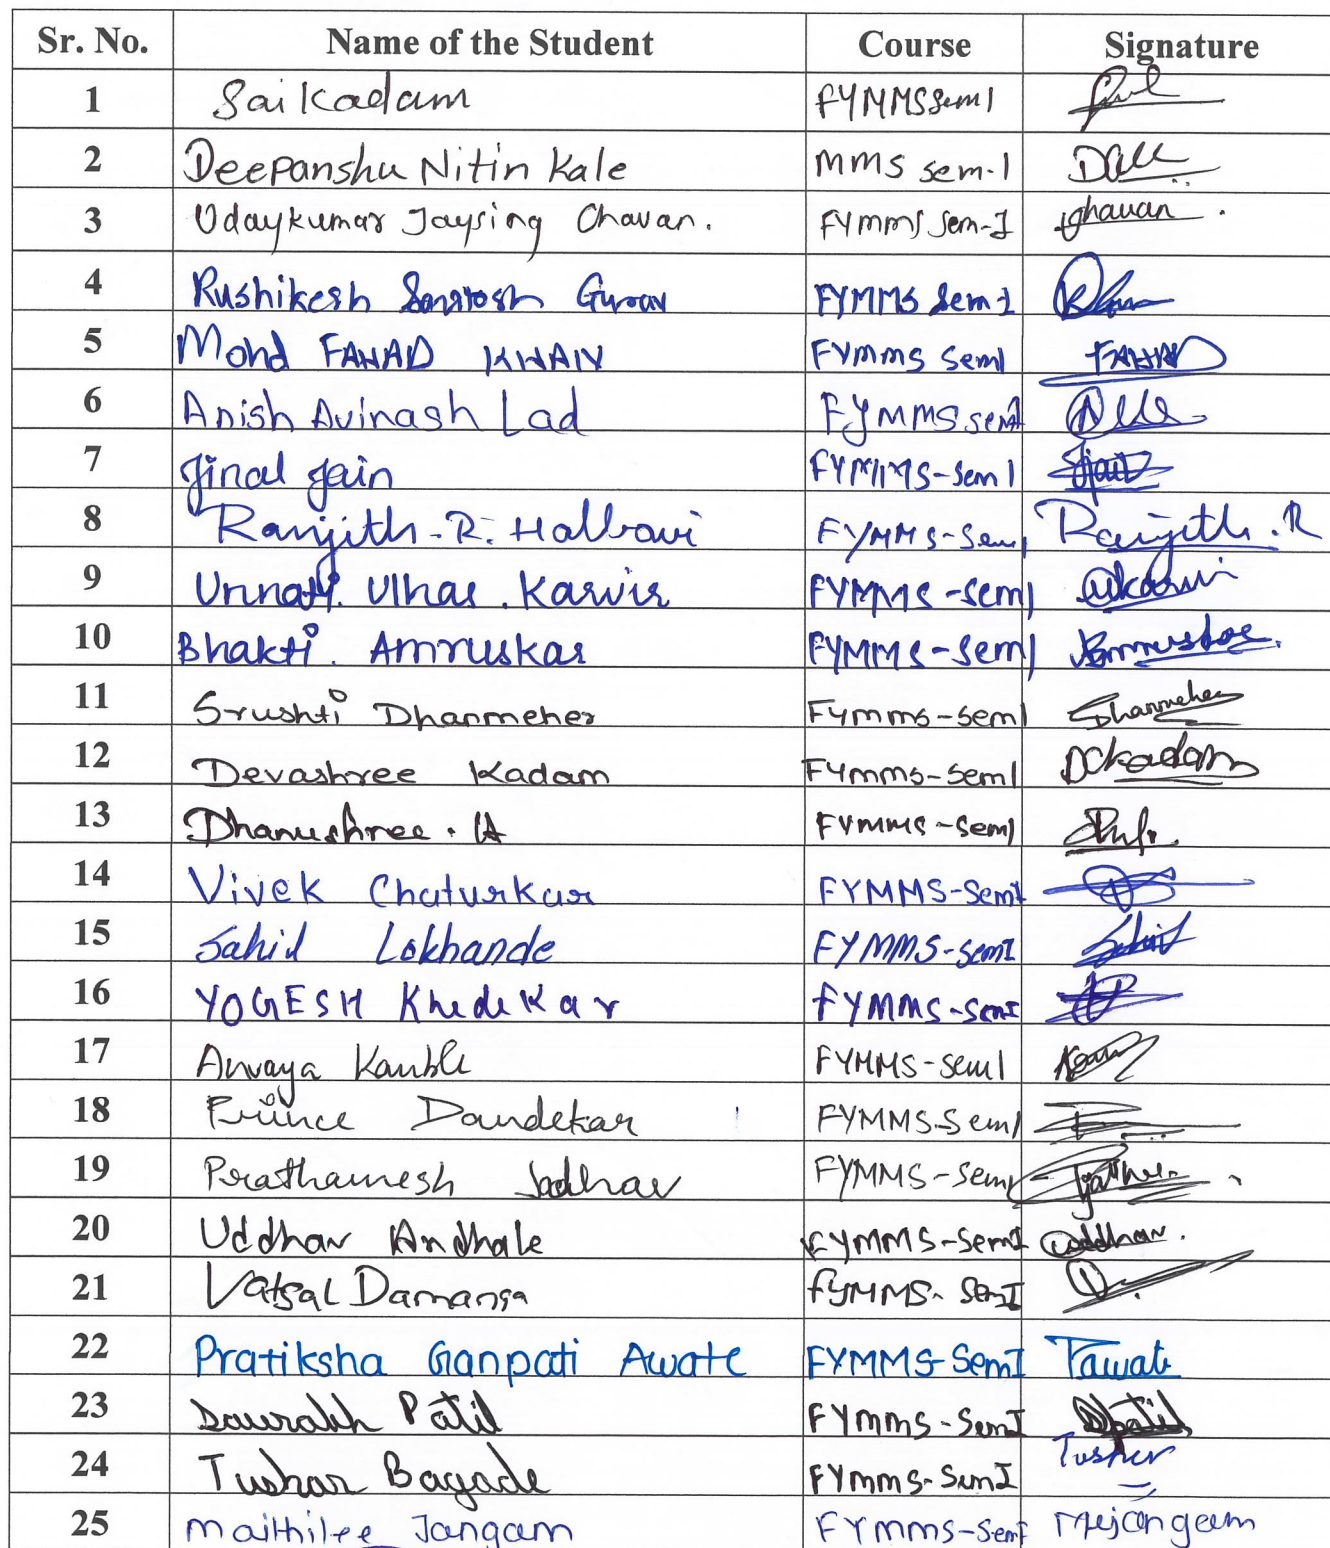 Sr. No. Name of the Student Course Signature
1 Sai Kadam FYMMS Sem I
2 Deepanshu Nitin Kale MMS Sem-I
3 Udaykumar Jaysing Chavan. FYMMS Sem-I
4 Rushikesh Santosh Gurav FYMMS Sem I
5 Mohd FAHAD KHAN FYMMS Sem I FAHAD
6 Anish Avinash Lad FYMMS Sem I
7 Jinal Jain FYMMS-Sem I Jain
8 Ranjith-R. Halbavi FYMMS-Sem I Ranjith.R
9 Unnati. Ulhas. Karvir FYMMS-Sem I
10 Bhakti. Amruskar FYMMS-Sem I
11 Srushti Dhanmeher FYMMS-Sem I Dhanmeher
12 Devashree Kadam FYMMS-Sem I DCKadam
13 Dhanushree. A FYMMS-Sem I
14 Vivek Chaturkar FYMMS-Sem I
15 Sahil Lokhande FYMMS-Sem I Sahil
16 YOGESH Khedekar FYMMS-Sem I
17 Anvaya Kamble FYMMS-Sem I
18 Prince Dandekar FYMMS-Sem I
19 Prathamesh Jadhav FYMMS-Sem I
20 Uddhav Andhale FYMMS-Sem I Uddhav.
21 Vatsal Damania FYMMS-Sem I
22 Pratiksha Ganpati Awate FYMMS-Sem I Pawate
23 Saurabh Patil FYMMS-Sem I SPatil
24 Tushar Bagade FYMMS-Sem I Tushar
25 Maithilee Jangam FYMMS-Sem I Mejangam